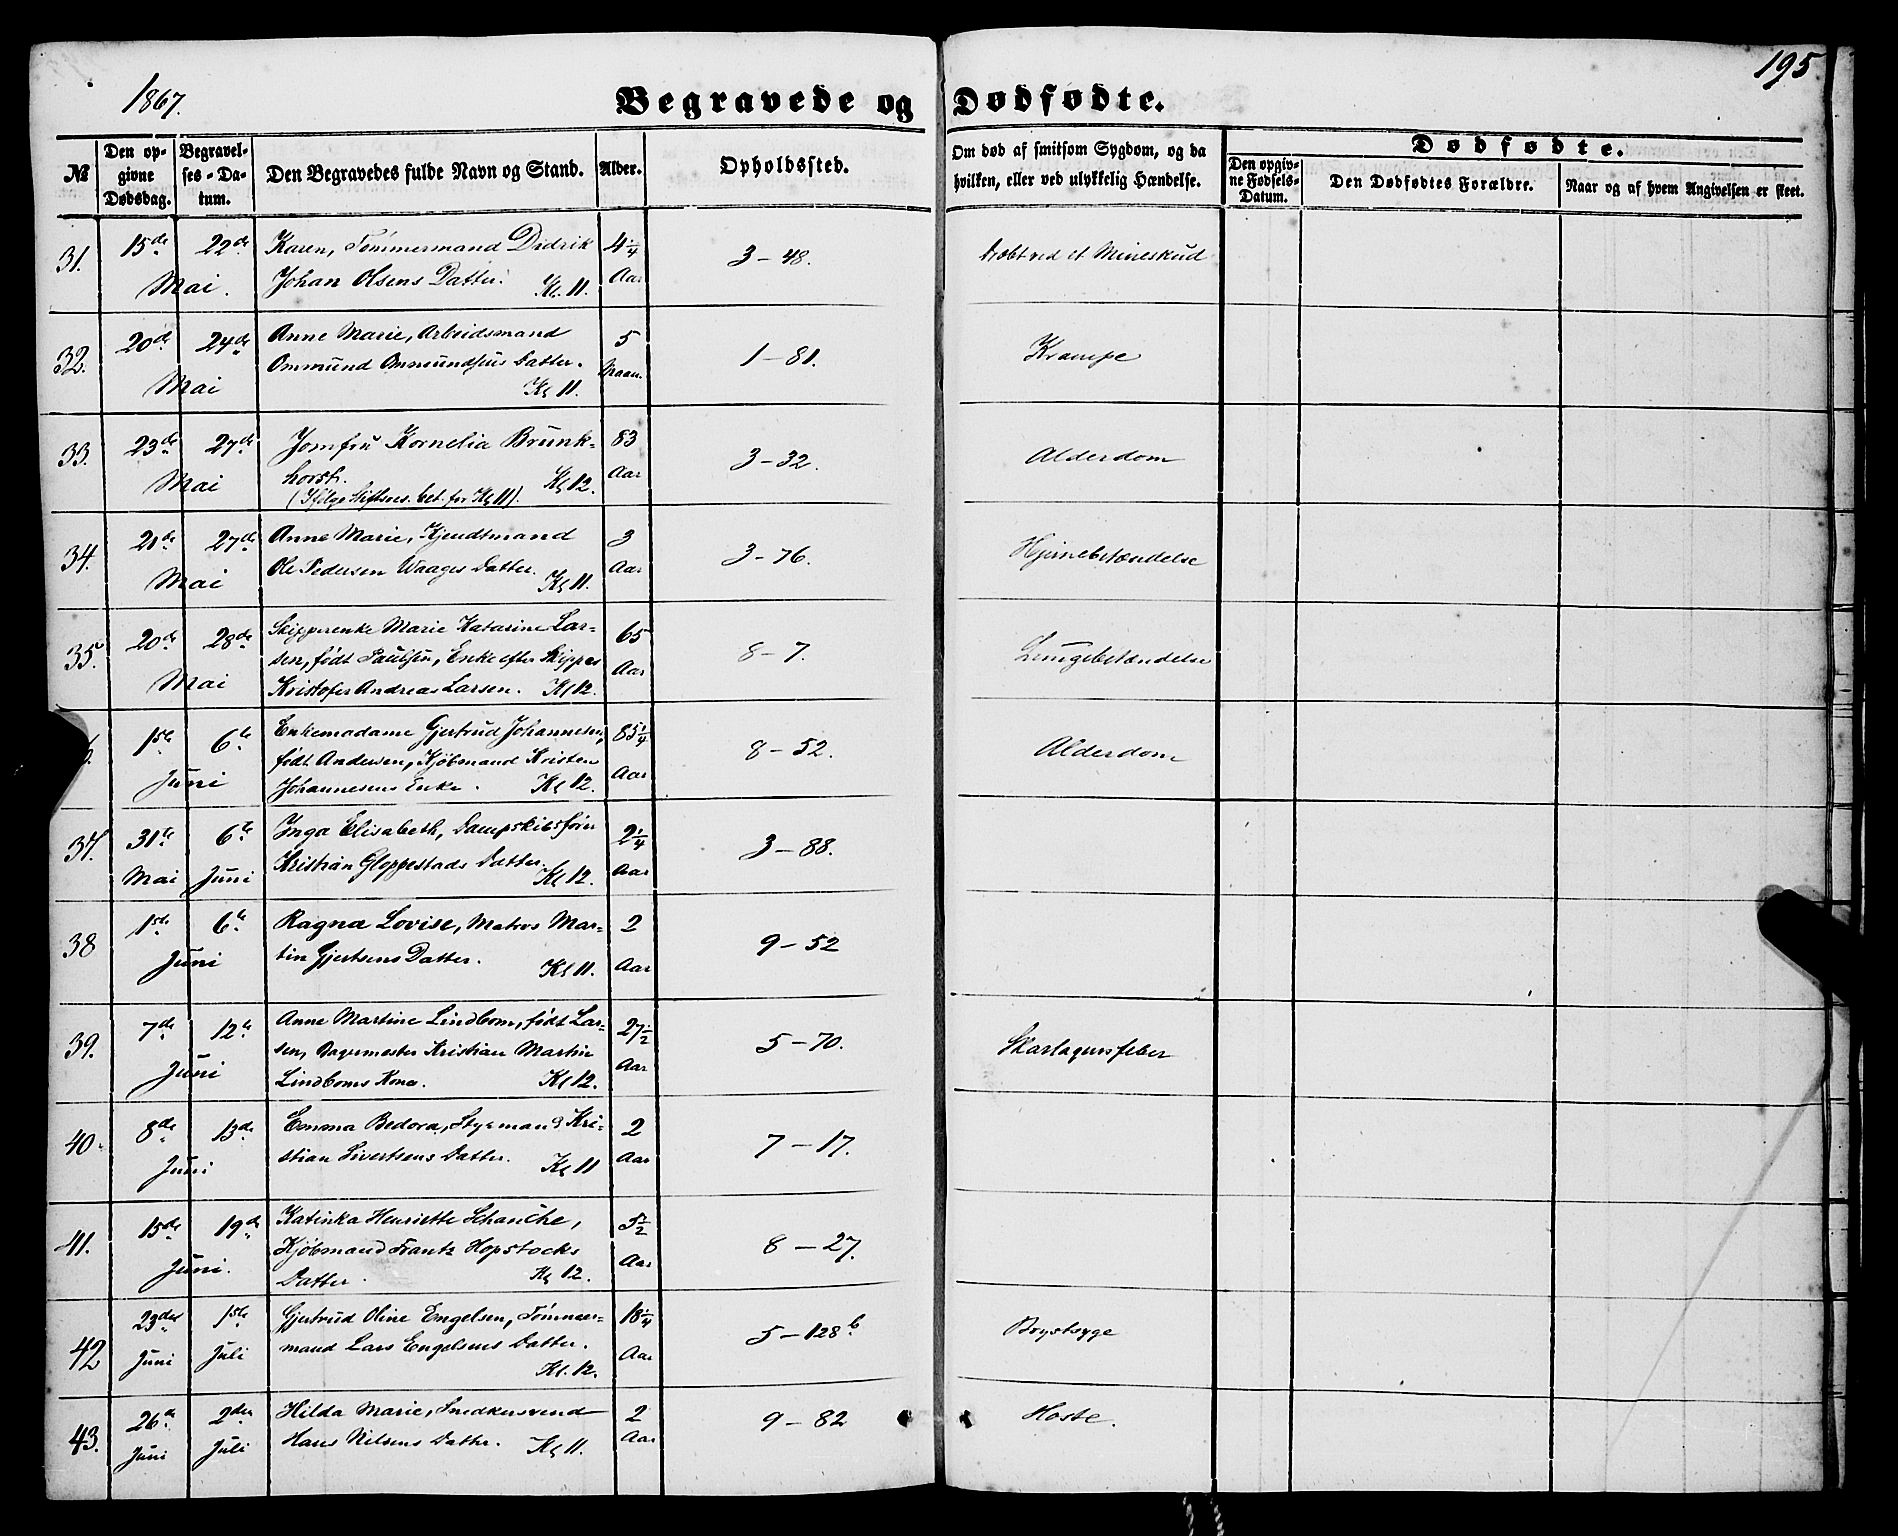 1867.
195
Begravede og Dødfødte.
№
Den opgivne Dødsdag.
Begravelses-Datum.
Den Begravedes fulde Navn og Stand.
Alder.
Opholdssted.
Om død af smitsom Sygdom, og da hvilken, eller ved ulykkelig Hændelse.
Dødfødte.
Den opgivne Fødsels-Datum.
Den Dødfødtes Forældre.
Naar og af hvem Angivelsen er skeet.
31. 15de 22de Karen, Tømmermand Didrik 4¼ 3-48. Dræbt ved et Mineskud
Mai. Johan Olsens Datter. Kl. 11. Aar
32. 20de 24de Anne Marie, Arbeidsmand 5 1-81. Krampe
Ommund Ommundsens Datter. Maan.
Mai Kl 11.
33. 23de 27de Jomfru Kornelia Brunk- 83 3-32. Alderdom
Mai horst. Kl 12. Aar
(Ifølge Skiftes. bet. for Kl 11).
34. 21de 27de Anne Marie, Kjendtmand 3 3-76. Hjernebetændelse
Mai Ole Pedersen Waages Datter. Kl 11. Aar
35. 20de 28de Skipperenke Marie Katarine Lar- 65 8-7. Lungebetændelse
sen, født Paulsen, Enke efter Skipper Aar
Mai Kristofer Andreas Larsen. Kl 12.
1ste 6te Enkemadame Gjertrud Johannesen, 85¼ 8-52. Alderdom
født Andersen, Kjøbmand Kristen Aar
Juni Johannesens Enke. Kl 12.
37. 31te 6te Inga Elisabeth, Dampskibsfører 2¼ 3-88.
Mai Juni Kristian Gloppestads Datter. Kl 12. Aar
38 1ste 6te Ragna Lovise, Matros Mar- 2 9-52
Juni tin Gjertsens Datter. Kl 11. Aar
39. 7de 12te Anne Martine Lindbom, født Lar- 27½ 5-70. Skarlagensfeber
sen, Bagermester Kristian Martin Aar
Juni Lindboms Kone. Kl 12.
40. 8de 13de Emma Bedora, Styrmand Kri- 2 7-17.
Juni stian Sivertsens Datter. Kl 11 Aar
41. 15de 19de Katinka Henriette Schanche, 5½ 8-27.
Kjøbmand Frantz Hopstocks Aar
Juni. Datter. Kl 12.
42 23de 1ste Gjertrud Oline Engelsen, Tømmer- 18¼ 5-128b Brystsyge
Juni Juli mand Lars Engelsens Datter. Aar
Kl. 12.
43. 26de 2den Hilda Marie, Snedkersvend 2 9-82 Hoste.
Juni Juli Hans Nilsens Datter. Kl 11. Aar